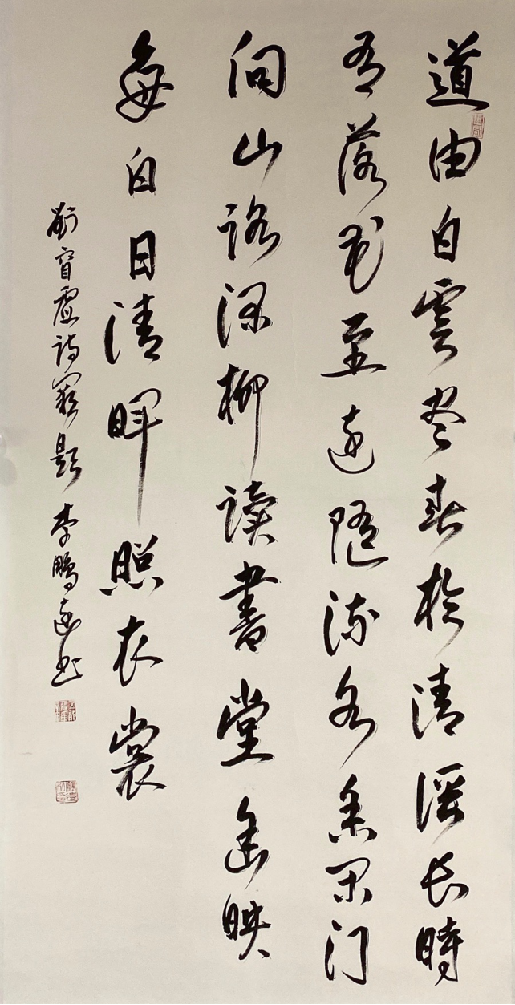 道由白雲尽春於清溪长時
有落花至远随流水香闲门
向山路深柳读書堂幽映
每白日清晖照衣裳
劉眘虚诗阙题 李鹏远书